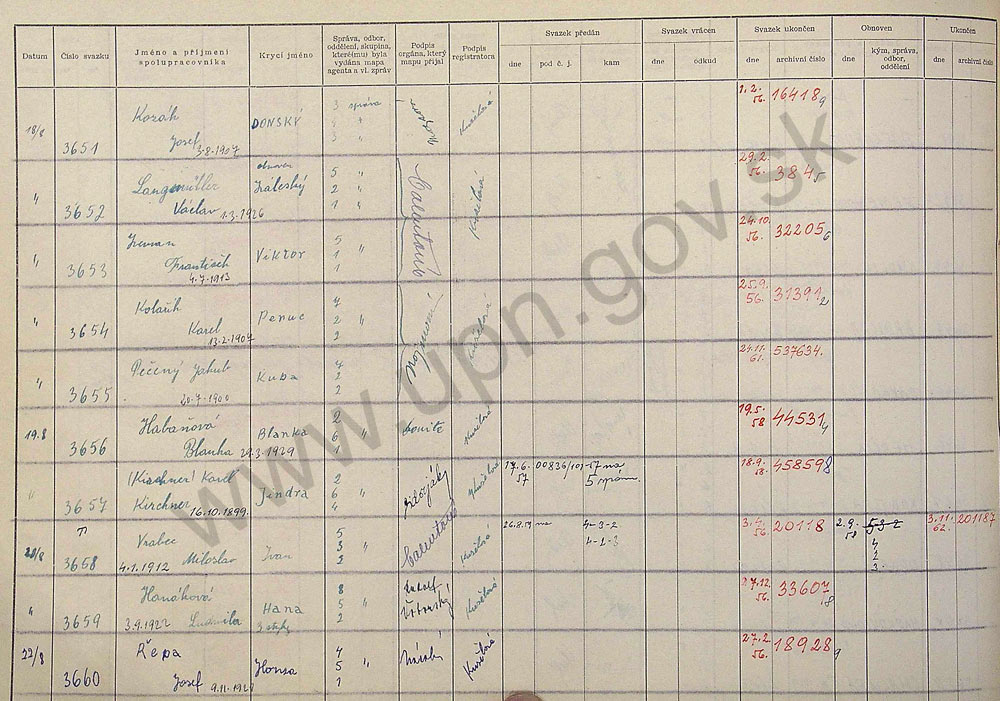 Datum
Číslo svazku
Jméno a příjmení
spolupracovníka
Krycí jméno
Správa, odbor,
oddělení, skupina,
které(mu) byla
vydána mapa
agenta a vl. zpráv
Podpis
orgána, který
mapu přijal
Podpis
registratora
Svazek předán
dne
pod č. j.
kam
Svazek vrácen
dne
odkud
Svazek ukončen
dne
archivní číslo
Obnoven
dne
kým, správa,
odbor,
oddělení
Ukončen
dne
archivní číslo
18/8
3651
Kozák
Josef 3.8.1907
DONSKÝ
3 správa
1.2.
56.
16418
"
3652
Langmüller
Václav 1.3.1926
obnoven
Záleský
5 "
2 "
1 "
29.2.
56.
384
"
3653
Zeman
František
4.7.1913
Viktor
5
1 "
1
24.10.
56.
32205
"
3654
Kolařík
Karel
13.2.1907
Penuc
4
2 "
2
25.9.
56.
31391
"
3655
Pečený Jakub
20.7.1900
Kuba
4
2
2
24.11.
61.
537634.
19.8
3656
Habaňová
Blanka 29.3.1929
Blanka
2
6 "
1
19.5.
58
44531
"
3657
(Kirchner) Karel
Kirchner 16.10.1899.
Jindra
2
6 "
4
17.6.
57
5 správu.
18.9.
58.
45859
20/8
3658
Vrabec
4.1.1912 Miloslav
Ivan
5
3 "
3
26.8.
4-3-2
4-2-3
3.4.
56.
20118
2.9.
58
5-3-2
4
2
3.
3.11.
62.
201187
"
3659
Hanáková
3.9.1922 Ludmila
Hana
8
5 "
2
27.12.
56.
33607
22/8
3660
Řepa
Josef 9.11.1927
Honsa
4
5 "
1
27.2.
56.
18928
www.upn.gov.sk